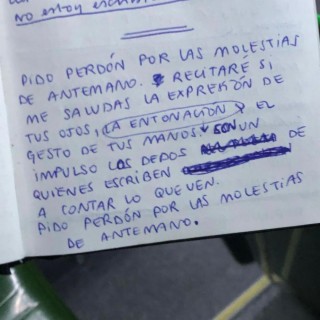 no estoy
PIDO PERDÓN POR LAS MOLESTIAS
DE ANTEMANO. RECITARÉ SI
ME SALUDAS LA EXPRESIÓN DE
TUS OJOS, LA ENTONACIÓN, EL
GESTO DE TUS MANOS. SON UN
IMPULSO LOS DEDOS DE
QUIENES ESCRIBEN
A CONTAR LO QUE VEN.
PIDO PERDÓN POR LAS MOLESTIAS
DE ANTEMANO.